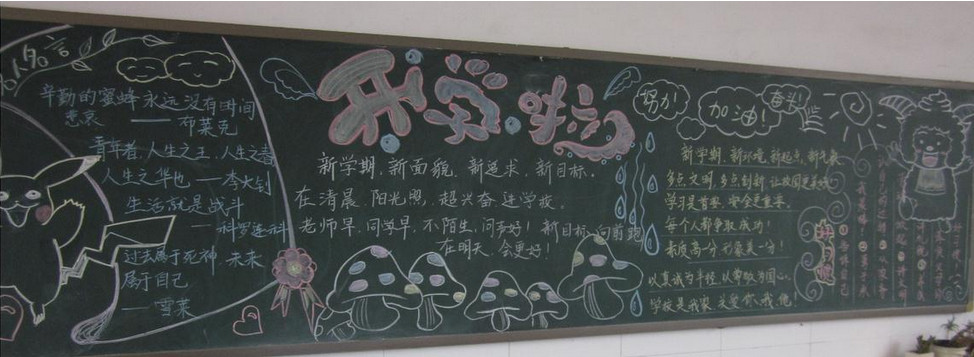 名言
辛勤的蜜蜂永远没有时间
悲哀 —— 布莱克
青年者,人生之王,人生之春
人生之华也 —— 李大钊
生活就是战斗
—— 科罗连科
过去属于死神,未来
属于自己
—— 雪莱
开学啦
新学期,新面貌,新追求,新目标。
在清晨,阳光照,超兴奋,进学校。
老师早,同学早,不陌生,问声好!新目标,向前跑
在明天,会更好!
努力!
加油!
奋斗!
新学期,新环境,新起点,新气象
多点文明,多点创新,让校园更美好
学习是首要,安全更重要。
每个人都争取成功!
素质高一分,形象美一分!
以真诚为半径,以尊敬为圆心。
学校是我家,关爱你、我、他!